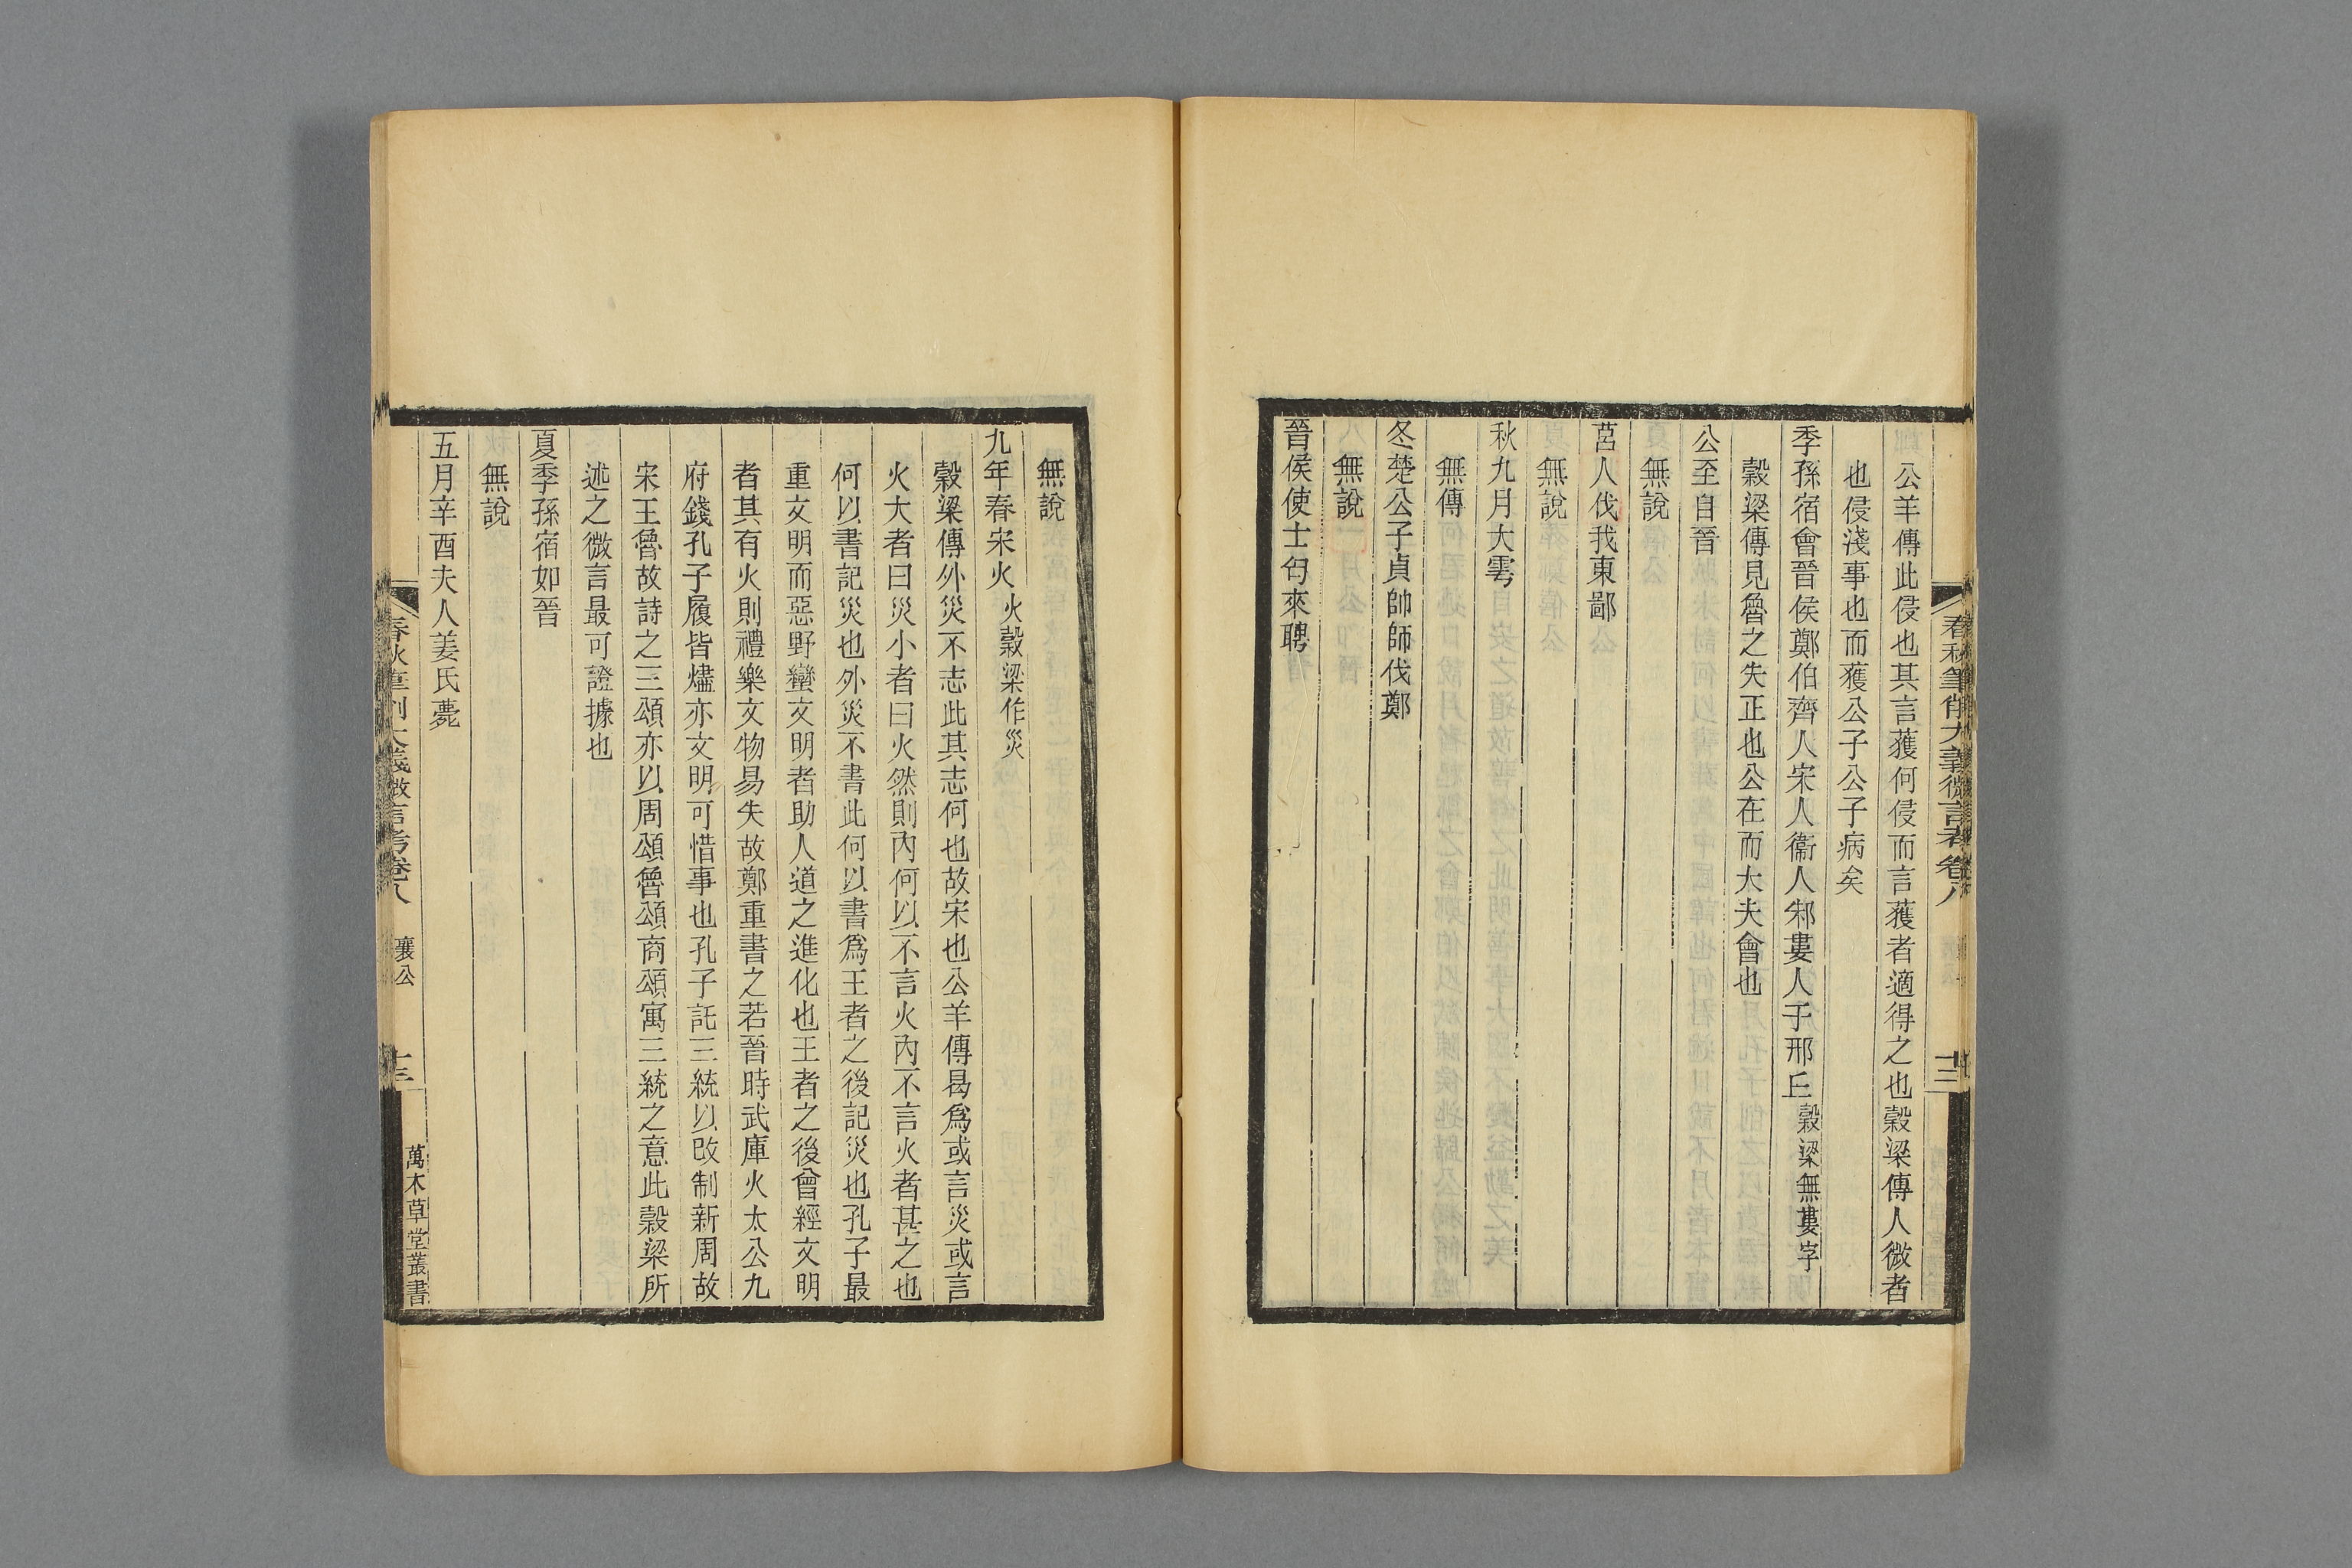 春秋筆削大義微言考卷八
十二
公羊傳此侵也其言蒦何侵而言蒦者適得之也穀梁傳人微者
也侵淺事也而獲公子公子病矣
季孫宿會晉侯鄭伯齊人宋人衞人邾婁人于邢丘穀梁無婁字
穀梁傳見魯之失正也公在而大夫會也
公至自晉
無說
莒人伐我東鄙
無說
秋九月大雩
無傳
冬楚公子貞帥師伐鄭
無說
晉侯使士匄來聘
無說
九年春宋火火穀梁作災
穀梁傳外災不志此其志何也故宋也公羊傳曷爲或言災或言
火大者曰災小者曰火然則內何以不言火內不言火者甚之也
何以書記災也外災不書此何以書爲王者之後記災也孔子最
重文明而惡野蠻文明者助人道之進化也王者之後曾經文明
者其有火則禮樂文物易失故鄭重書之若晉時武庫火太公九
府錢孔子履皆燼亦文明可惜事也孔子託三統以改制新周故
宋王魯故詩之三頌亦以周頌魯頌商頌寓三統之意此穀梁所
述之微言最可證據也
夏季孫宿如晉
無說
五月辛酉夫人姜氏薨
春秋筆削大義微言考卷八
襄公
十三
萬木草堂叢書